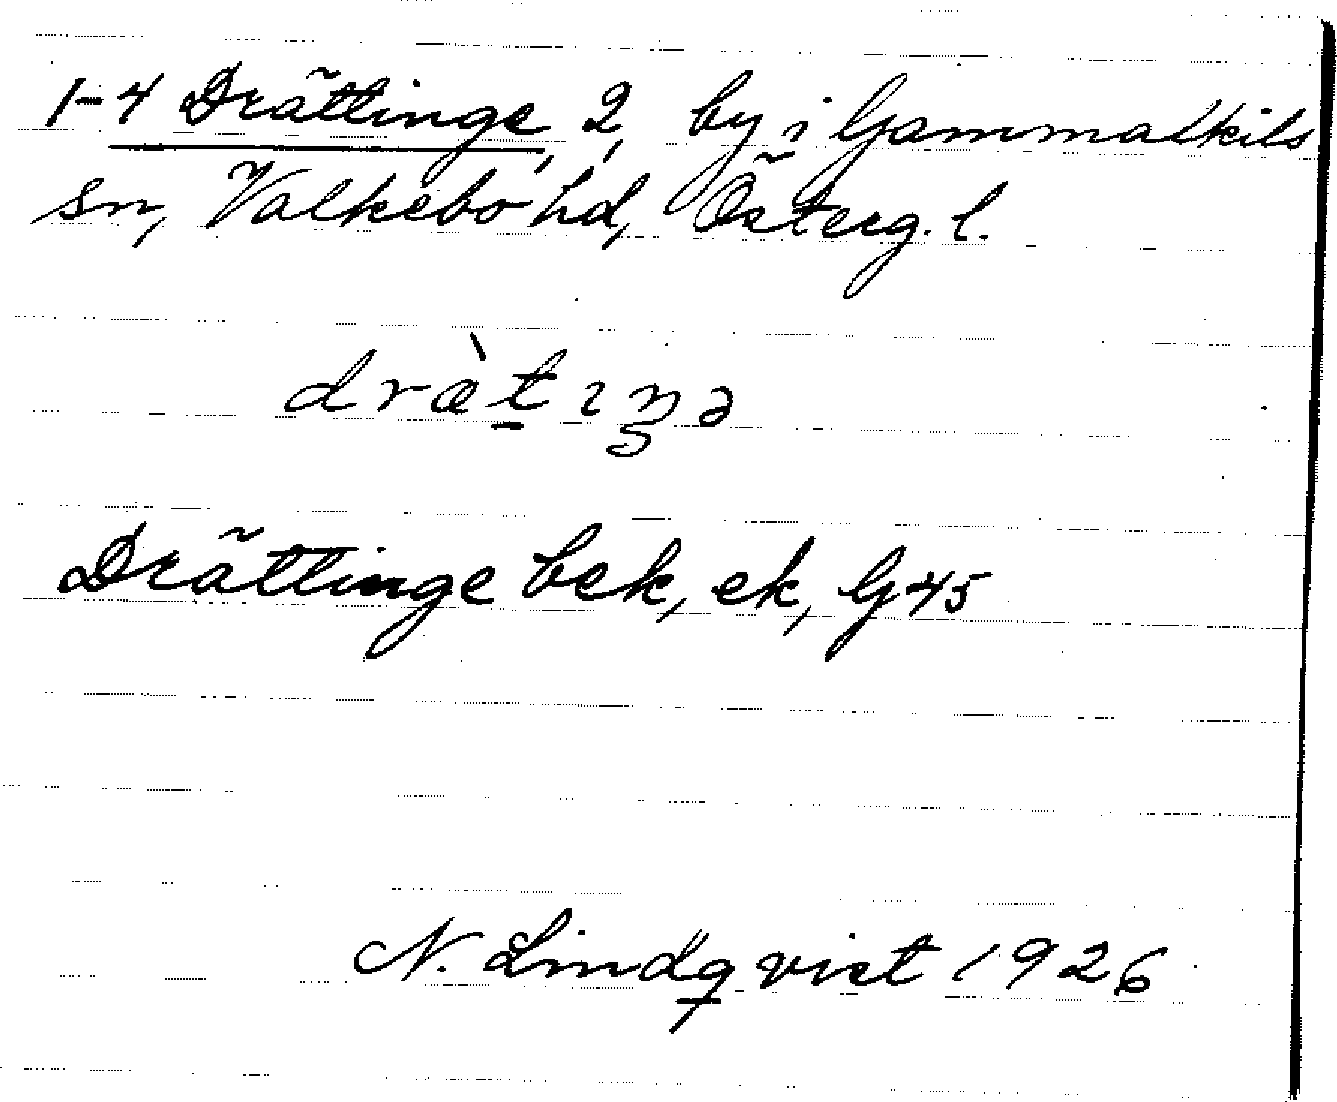 1-4 Drättinge, 2, by i Gammalkils
sn, Valkebo hd, Österg. l.
dræ̀tıŋə
Drättinge bek, ek, G45
N. Lindqvist 1926